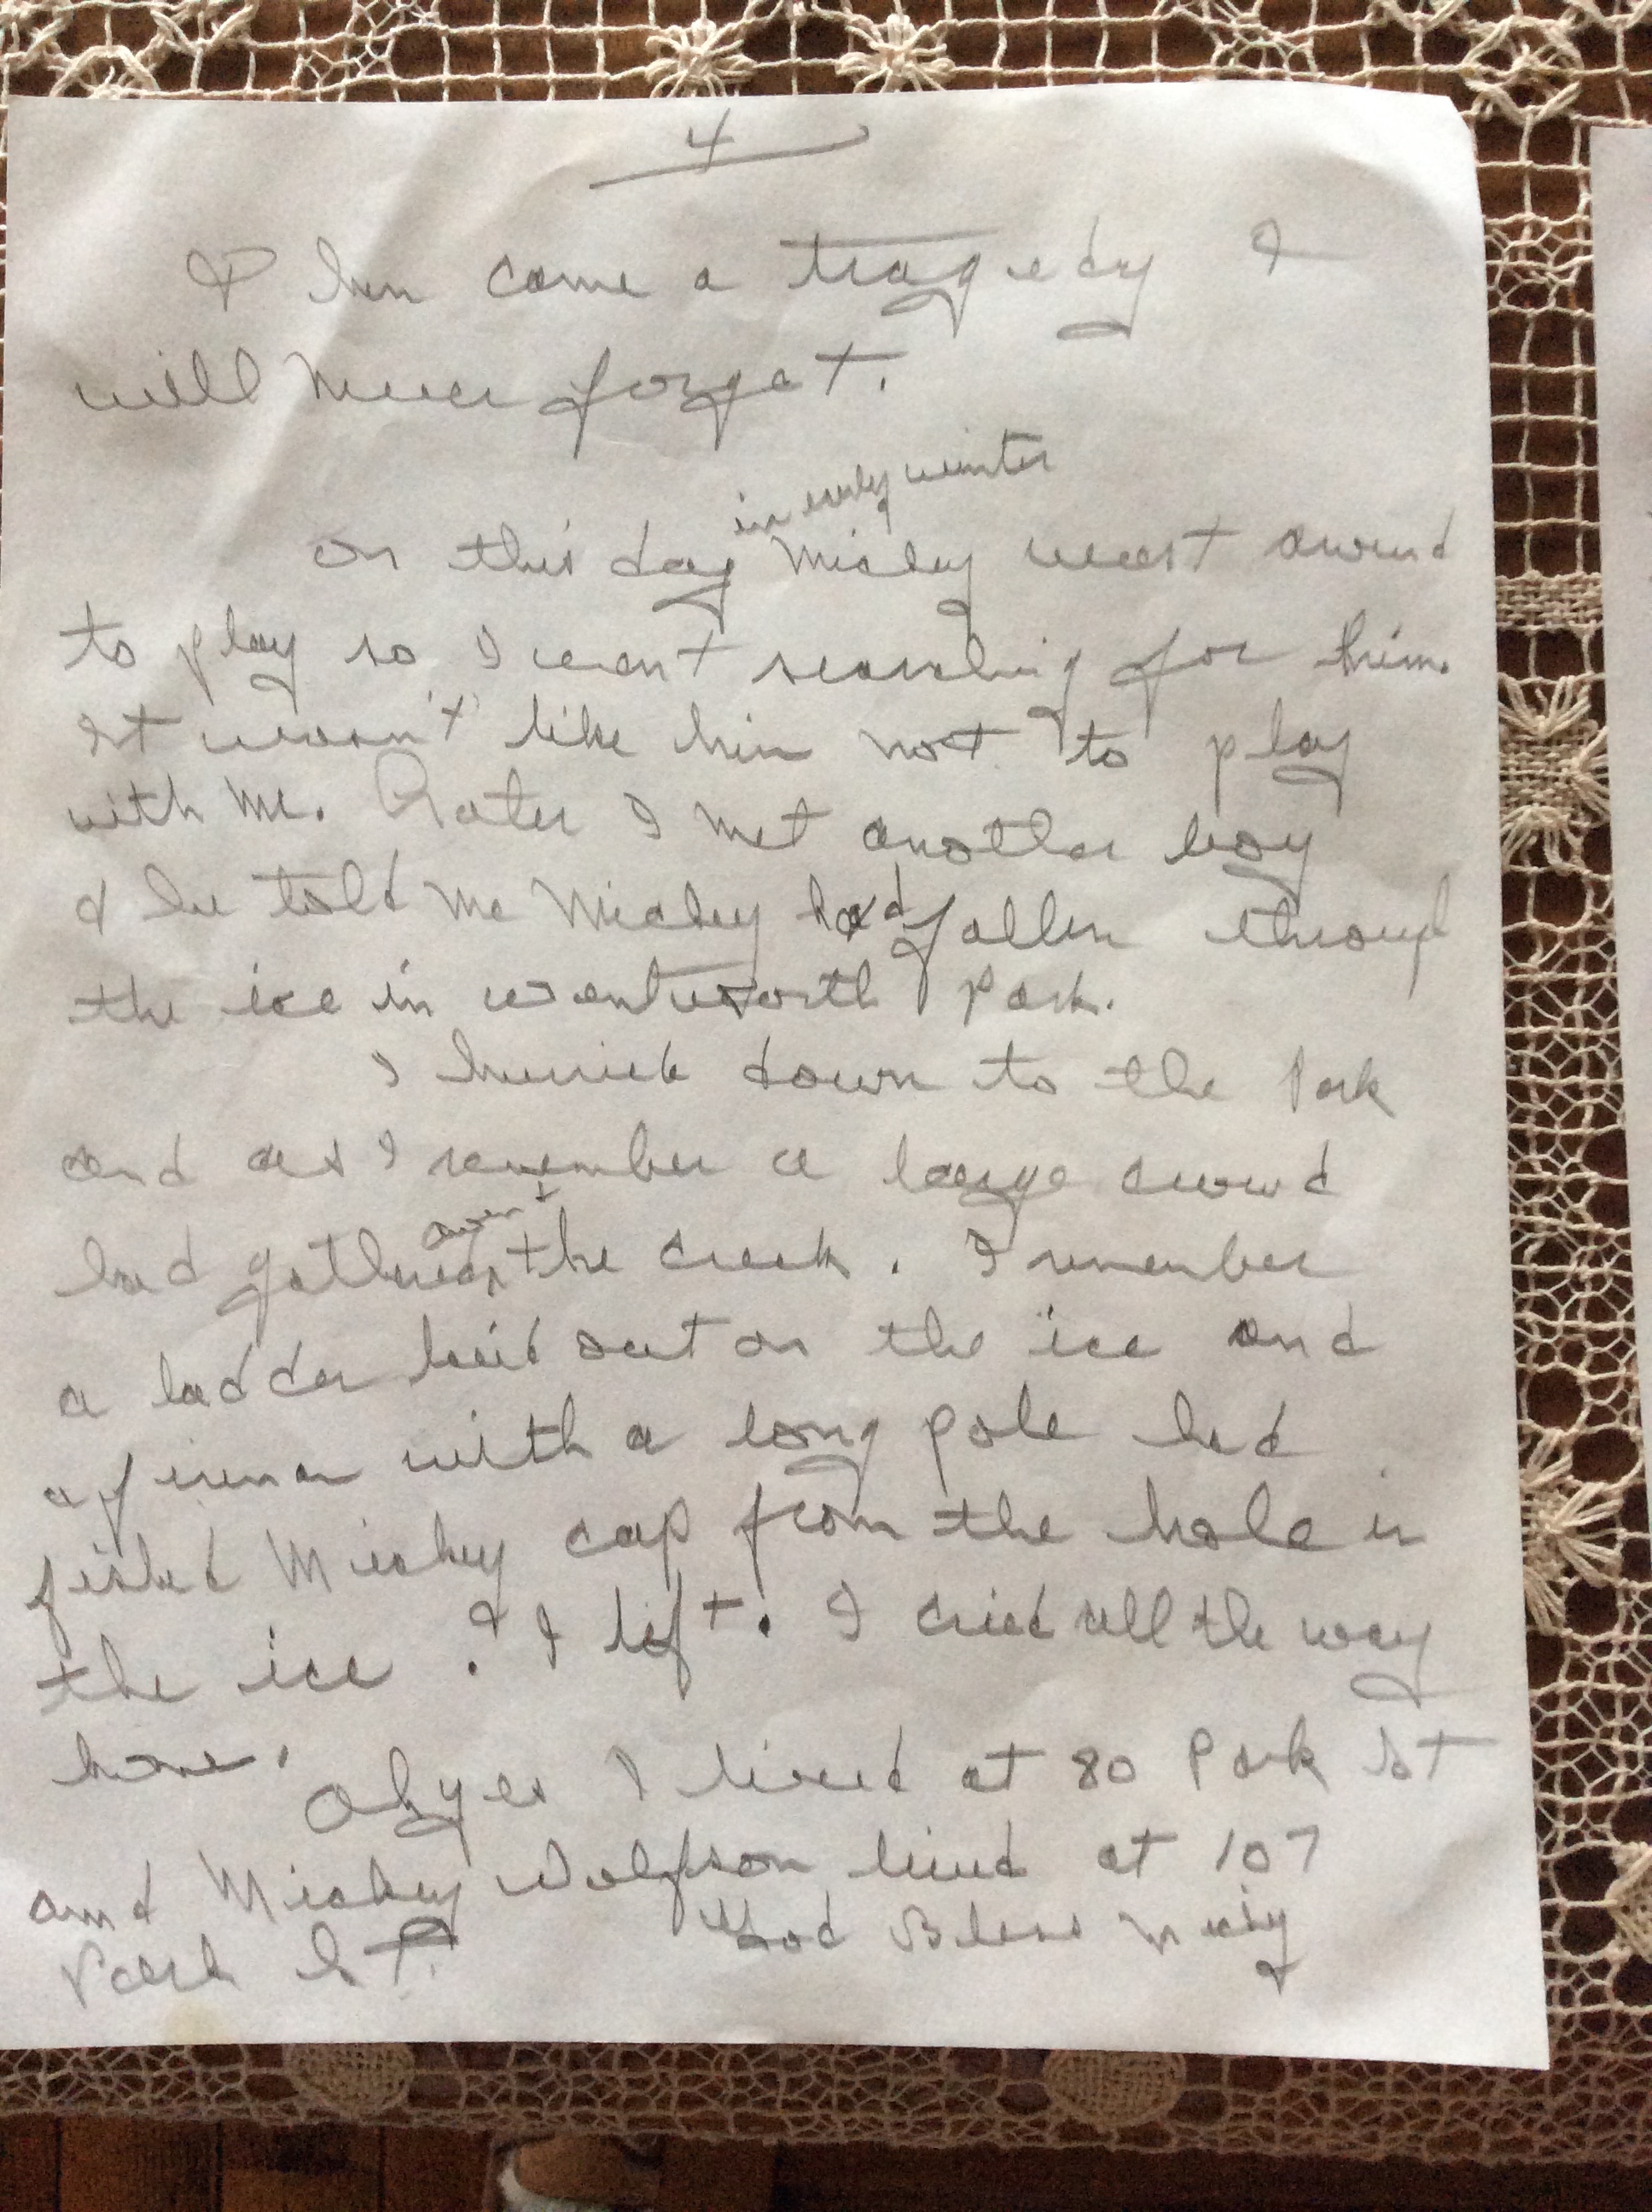 4
Then came a tragedy I
will never forget.
in early winter
On this day Mickey wasnt around
to play so I went searching for him.
It wasn't like him not to play
with me. Later I met another boy
& he told me Mickey had fallen through
the ice in wentworth Park.
I hurried down to the Park
and as I remember a large crowd
over
had gathered the creek. I remember
a ladder laid out on the ice and
a fireman with a long pole had
fished Mickey cap from the hole in
the ice. & I left. I cried all the way
home.
Oh yes I lived at 80 Park St
and Mickey Wolfson lived at 107
Park St.
God Bless Micky